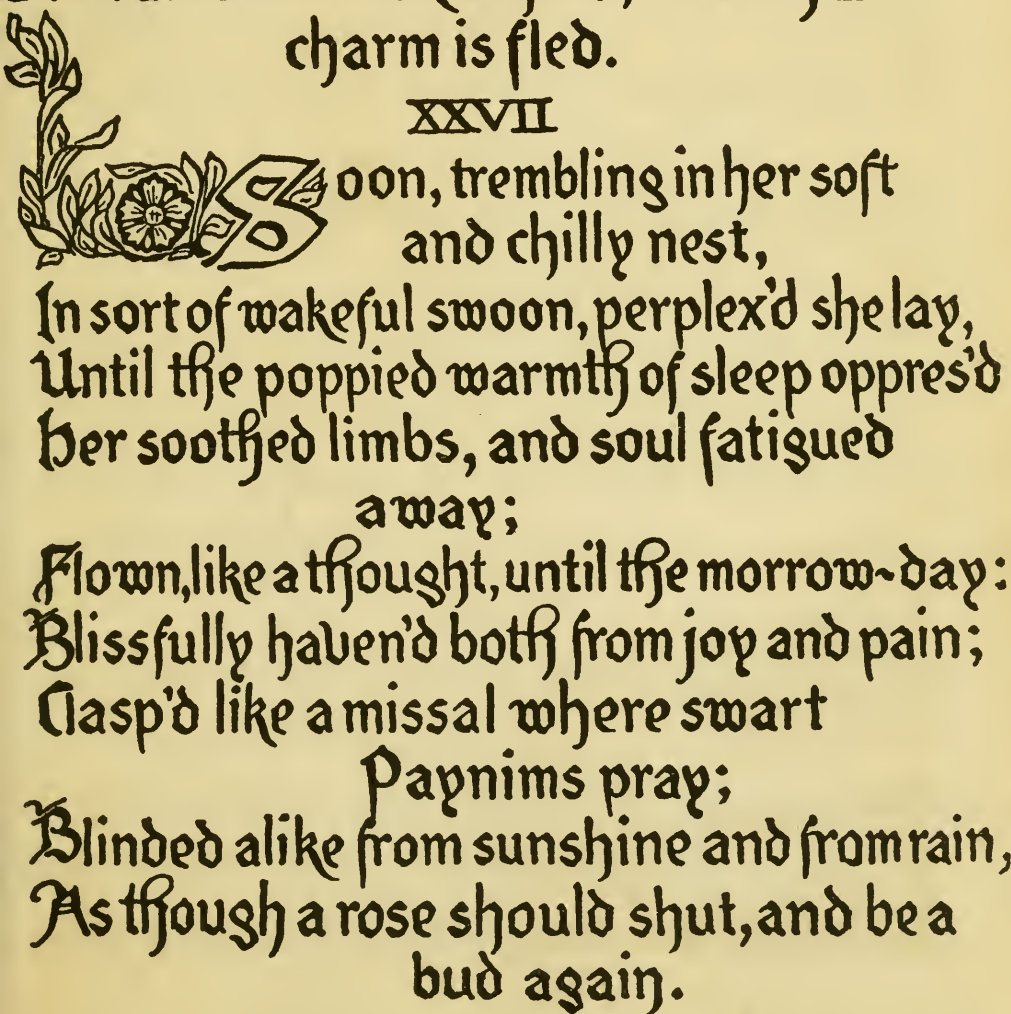 charm is fled.
XXVII
Soon, trembling in her soft
and chilly nest,
In sort of wakeful swoon, perplex'd she lay,
Until the poppied warmth of sleep oppres'd
Her soothed limbs, and soul fatigued
away;
Flown, like a thought, until the morrow-day:
Blissfully haven'd both from joy and pain;
Clasp'd like a missal where swart
Paynims pray;
Blinded alike from sunshine and from rain,
As though a rose should shut, and be a
bud again.